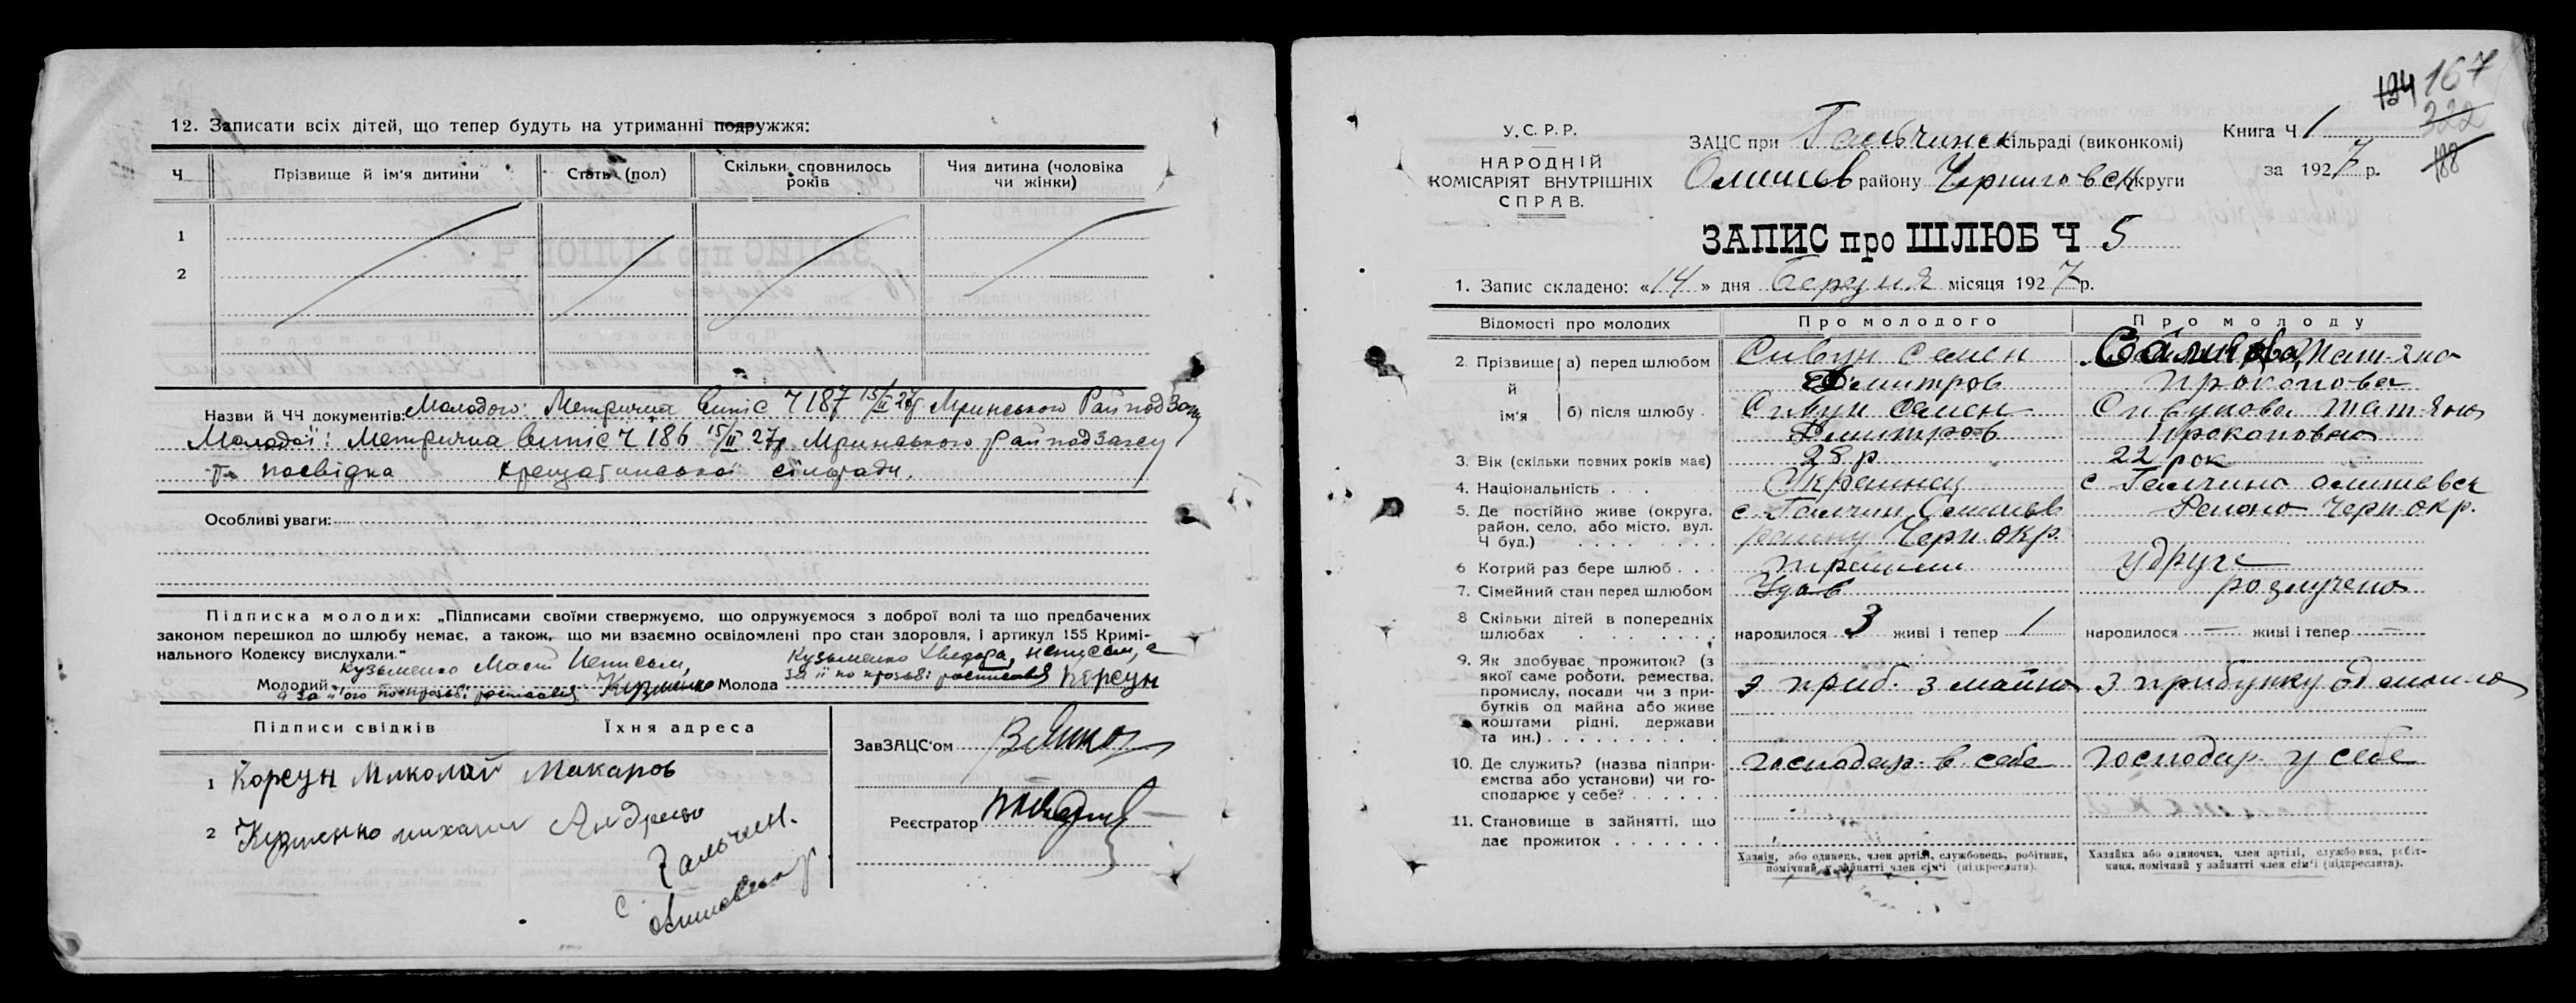 12. Записати всіх дітей, що тепер будуть на утриманні подружжя:
Ч Прізвище й ім'я дитини Стать (пол) Скільки сповнилось років Чия дитина (чоловіка чи жінки)
1
2
Назви й ЧЧ документів: Молодого: Метрична випіс Ч 187 15/II 27р Мринського Рай под Загсу
Молодої: Метрична випіс Ч 186 15/II 27р. Мринського рай под загсу
та посвідка хрещатинської сільради.
Особливі уваги:
Підписка молодих: „Підписами своїми ствержуємо, що одружуємося з доброї волі та що предбачених
законом перешкод до шлюбу немає, а також, що ми взаємно освідомлені про стан здоровля, і артикул 155 Кримі-
нального Кодексу вислухали."
Кузьменко неписьм, Кузьменко неписьм, а
Молодий а за його просьбі росписався Кузменко Молода за її по прозьбі росписався Корсун
Підписи свідків Їхня адреса
1 Корсун Миколай Макаров
2 Кузменко михаил Андреев
Гальчин.
с
ЗавЗАЦС'ом
Реєстратор
124 167
322
188
У.С.Р.Р.
НАРОДНІЙ
КОМІСАРІЯТ ВНУТРІШНІХ
СПРАВ.
ЗАЦС при Гальчинск сільраді (виконкомі)
Олишев району Черниговск округи
Книга Ч 1
за 1927 р.
ЗАПИС про ШЛЮБ Ч 5
1. Запис складено: «14» дня Березня місяця 1927 р.
Відомості про молодих Про молодого Про молоду
2. Прізвище й ім'я а) перед шлюбом Сивун Семен Дмитров Татяна Прокопова
б) після шлюбу Сивун Семен Дмитров Сивунова Татяна Прокоповна
3. Вік (скільки повних років має) 28 р 22 рок
4. Національність Украинец с Галчина Олишевск
5. Де постійно живе (округа, район, село, або місто, вул. Ч буд.) с Галчин Олишев району Черн. окр. Района Черн. окр.
6 Котрий раз бере шлюб удруге
7. Сімейний стан перед шлюбом Удов розлучена
8 Скільки дітей в попередніх шлюбах народилося 3 живі і тепер 1 народилося — живі і тепер —
9. Як здобуває прожиток? (з якої саме роботи, ремества, промислу, посади чи з прибутків од майна або живе коштами рідні, держави та ин.) з приб. з майна з прибутку од майна
10. Де служить? (назва підприємства або установи) чи господарює у себе? господар в себе господар у себе
11. Становище в зайнятті, що дає прожиток
Хазяїн, або одинець, член артілі, службовець, робітник, помічний у зайнятті член сім'ї (підкреслити).
Хазяйка або одиночка, член артілі, службовка, робітниця, помічний у зайнятті член сім'ї (підкреслити).